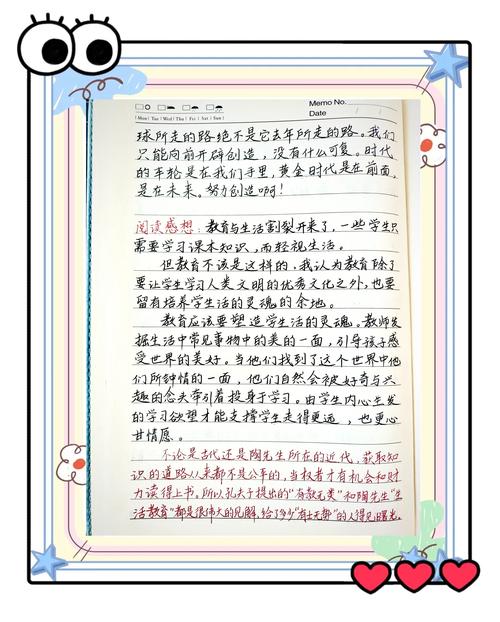 Memo No.
Mon Tue Wed Thu Fri Sat Sun
Date
球所走的路绝不是它去年所走的路。我们
只能向前开辟创造,没有什么可复。时代
的车轮是在我们手里,黄金时代是在前面,
是在未来。努力创造啊!
阅读感想:教育与生活割裂开来了,一些学生只
需要学习课本知识,而轻视生活。
但教育不该是这样的,我认为教育除了
要让学生学习人类文明的优秀文化之外,也要
留有培养学生活的灵魂的余地。
教育应该要塑造学生活的灵魂。教师发
掘生活中常见事物中的美的一面,引导孩子感
受世界的美好。当他们找到了这个世界中他
们所钟情的一面,他们自然会被好奇与兴
趣的念头牵引着投身于学习。由学生内心生发
的学习欲望才能支撑学生走得更远,也更心
甘情愿。
不论是古代还是陶先生所在的近代,获取知
识的道路从来都不是公平的,当权者才有机会和财
力读得上书,所以孔夫子提出的“有教无类”和陶先生“生
活教育”都是很伟大的见解,给了多少“有士无势”的人得见曙光。